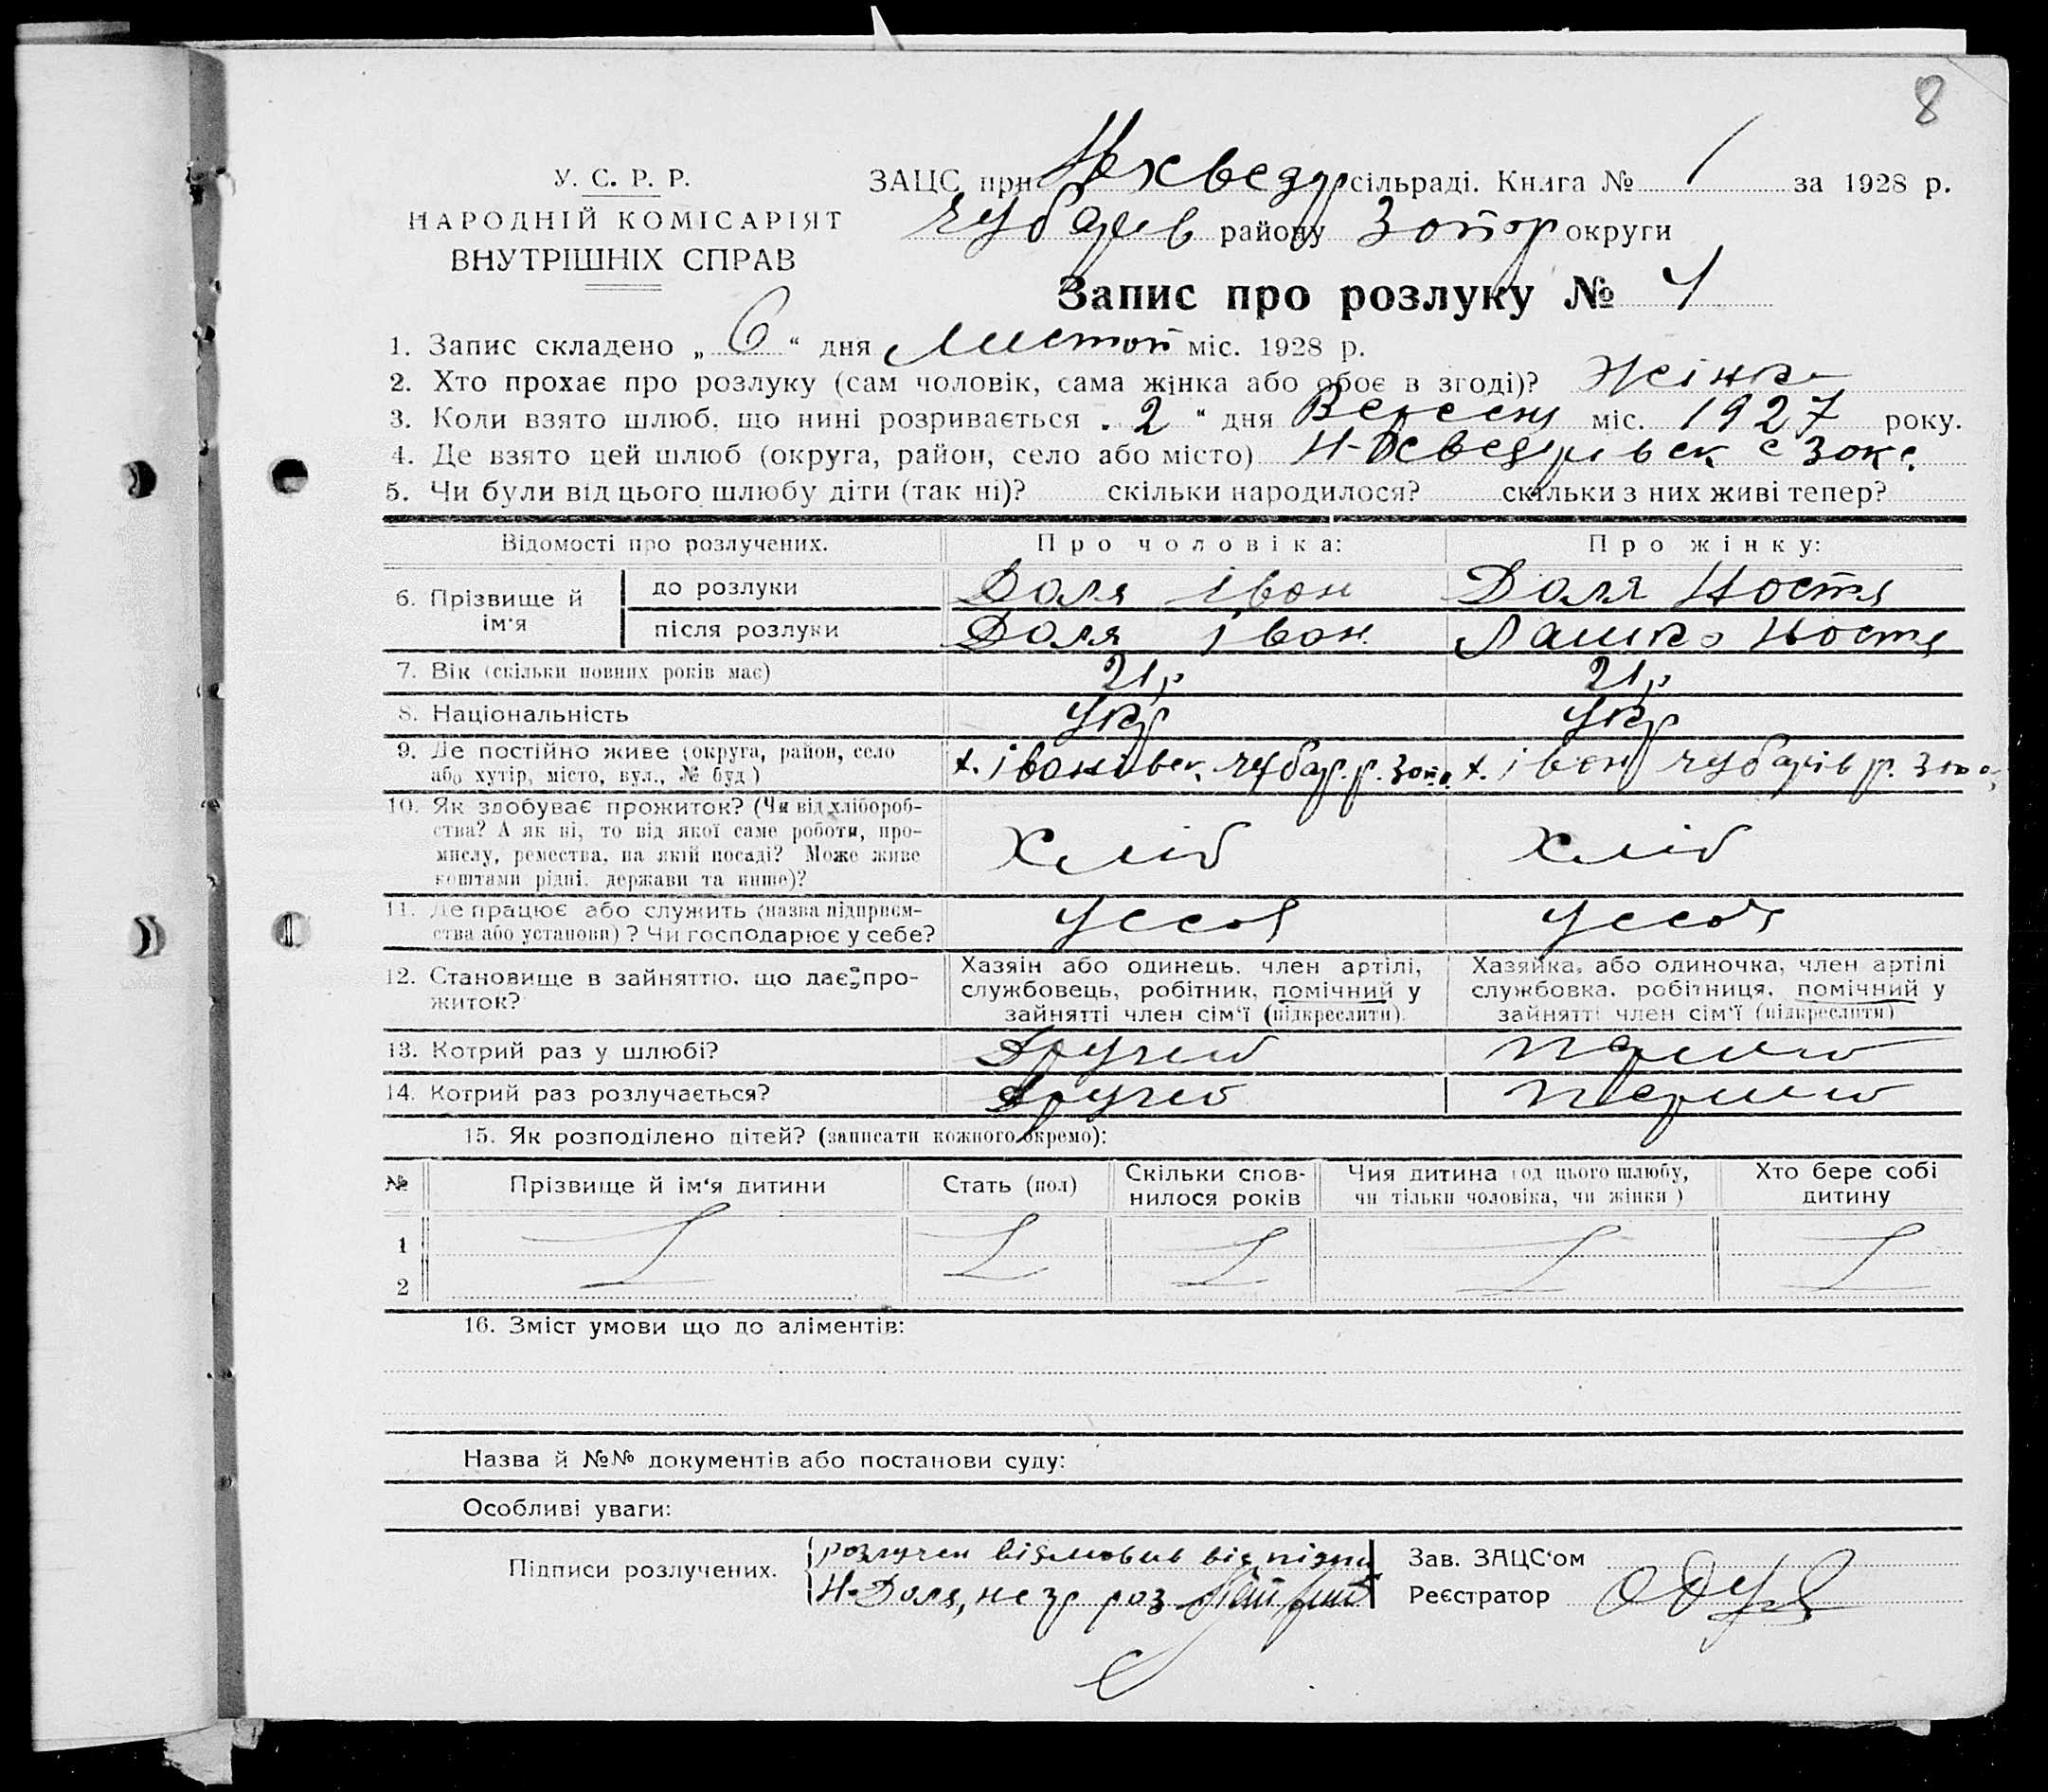 8
У. С. Р. Р.
НАРОДНІЙ КОМІСАРІЯТ
ВНУТРІШНІХ СПРАВ
ЗАЦС при сільраді. Книга № 1 за 1928 р.
Чубарів району Запор округи
Запис про розлуку № 4
1. Запис складено „ 6 “ дня Листоп міс. 1928 р.
2. Хто прохає про розлуку (сам чоловік, сама жінка або обоє в згоді)? Жінка
3. Коли взято шлюб, що нині розривається „ 2 “ дня Вересня міс. 1927 року.
4. Де взято цей шлюб (округа, район, село або місто)
5. Чи були від цього шлюбу діти (так ні)? скільки народилося? скільки з них живі тепер?
Відомості про розлучених. Про чоловіка: Про жінку:
6. Прізвище й ім'я до розлуки Доля Іван Доля Настя
після розлуки Доля Іван Лашко Настя
7. Вік (скільки повних років має) 21 р 21 р
8. Національність Укр Укр
9. Де постійно живе (округа, район, село
або хутір, місто, вул., № буд) х. Іванивск. Чубар. р. Зап. х. Іван Чубарів р. Зап
10. Як здобуває прожиток? (Чи від хлібороб-
ства? А як ні, то від якої саме роботи, про-
мислу, ремества, на якій посаді? Може живе
коштами рідні, держави та инше)? Хліб Хліб
11. Де працює або служить (назва підприєм-
ства або установи)? Чи господарює у себе? У себя У себя
12. Становище в зайняттю, що дає про-
житок?
Хазяїн або одинець, член артілі,
службовець, робітник, помічний у
зайнятті член сім'ї (підкреслити).
Хазяйка, або одиночка, член артілі
службовка, робітниця, помічний у
зайнятті член сім'ї (підкреслити)
13. Котрий раз у шлюбі? Другий Перший
14. Котрий раз розлучається? Другий Перший
15. Як розподілено дітей? (записати кожного окремо):
№ Прізвище й ім'я дитини Стать (пол) Скільки спов-
нилося років Чия дитина (од цього шлюбу,
чи тільки чоловіка, чи жінки) Хто бере собі
дитину
1
2
16. Зміст умови що до аліментів:
Назва й №№ документів або постанови суду:
Особливі уваги:
Підписи розлучених. розлучен відмовив від підпи
Н. Доля, не гр роз
Зав. ЗАЦС'ом
Реєстратор